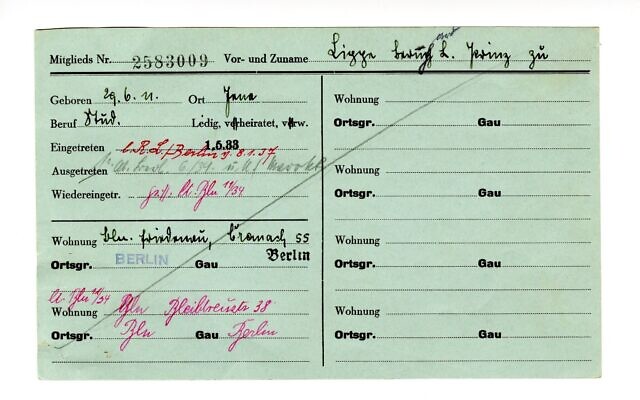 Mitglieds Nr. 2583009 Vor- und Zuname Lippe Bernhard L. Prinz zu
Geboren 29.6.11. Ort Jena
Beruf Stud. Ledig, verheiratet, verw.
Eingetreten 1.5.33
lt. R.L./Berlin v. 8.1.37
Ausgetreten
Wiedereingetr. gest. Lt. Bln 10/34
Wohnung Bln. Friedenau, Cranach 55
Ortsgr. BERLIN Gau Berlin
Lt. Bln 10/34
Wohnung Bln Bleibtreustr 38
Ortsgr. Bln Gau Berlin
Wohnung
Ortsgr. Gau
Wohnung
Ortsgr. Gau
Wohnung
Ortsgr. Gau
Wohnung
Ortsgr. Gau